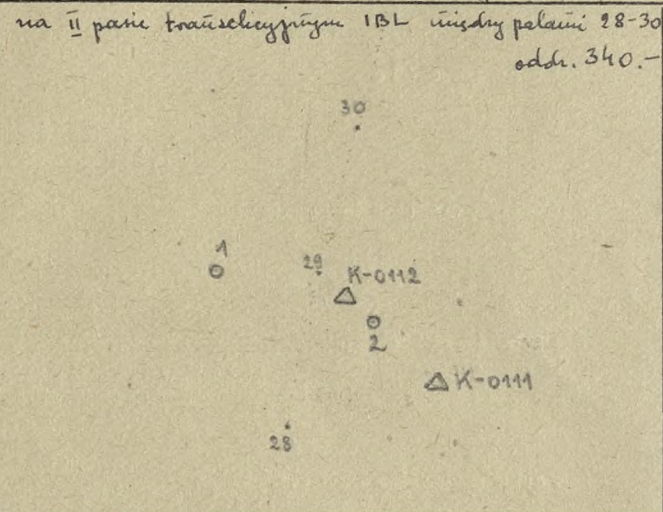 na II pasie transekcyjnym IBL między palami 28-30
oddz. 340.-
30
1
29
K-0112
2
K-0111
28